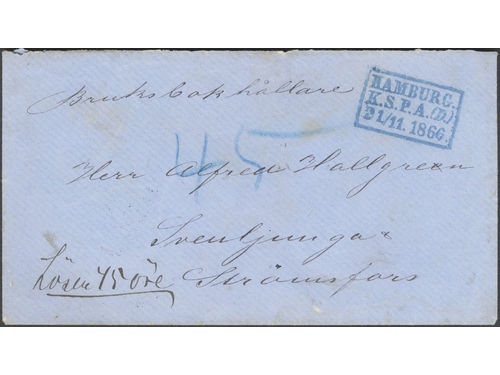 Bruksbokhållare
HAMBURG.
K.S.P.A.(D.)
21/11.1866.
45
Herr Alfred Hallgreen
Svenljunga
Lösen 45 öre
Strömsfors